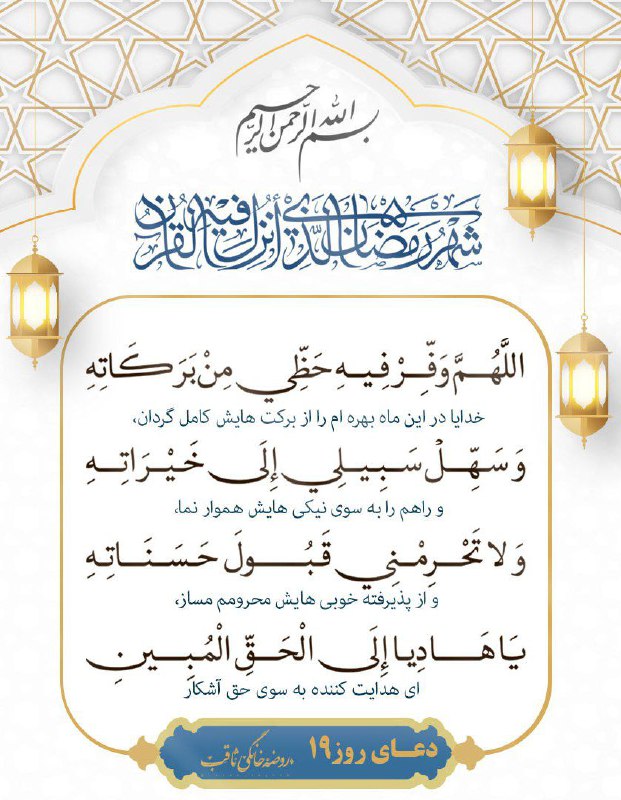 بسم الله الرحمن الرحیم
شَهْرُ رَمَضَانَ الَّذِي أُنْزِلَ فِيهِ الْقُرْآنُ
اللَّهُمَّ وَفِّرْ فِيهِ حَظِّي مِنْ بَرَكَاتِهِ
خدایا در این ماه بهره ام را از برکت هایش کامل گردان،
وَ سَهِّلْ سَبِيلِي إِلَى خَيْرَاتِهِ
و راهم را به سوی نیکی هایش هموار نما،
وَ لا تَحْرِمْنِي قَبُولَ حَسَنَاتِهِ
و از پذیرفته خوبی هایش محرومم مساز،
يَا هَادِيا إِلَى الْحَقِّ الْمُبِينِ
ای هدایت کننده به سوی حق آشکار
دعای روز ۱۹
روضه خانگی ثاقب